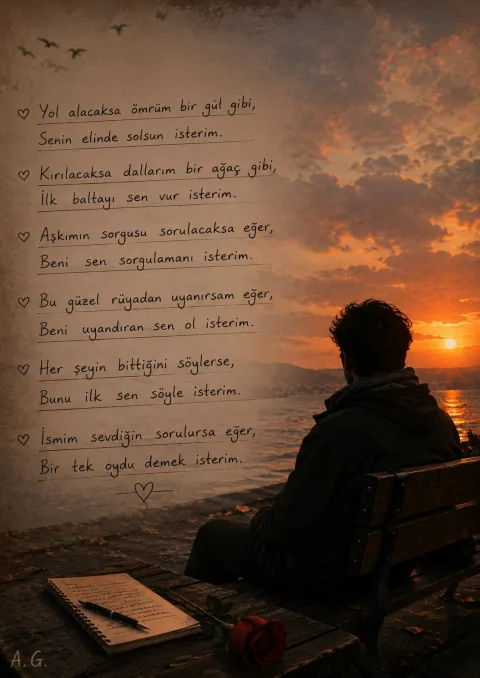 Yol alacaksa ömrüm bir gül gibi,
Senin elinde solsun isterim.
Kırılacaksa dallarım bir ağaç gibi,
İlk baltayı sen vur isterim.
Aşkımın sorgusu sorulacaksa eğer,
Beni sen sorgulamanı isterim.
Bu güzel rüyadan uyanırsam eğer,
Beni uyandıran sen ol isterim.
Her şeyin bittiğini söylerse,
Bunu ilk sen söyle isterim.
İsmim sevdiğin sorulursa eğer,
Bir tek oydu demek isterim.
A. G.